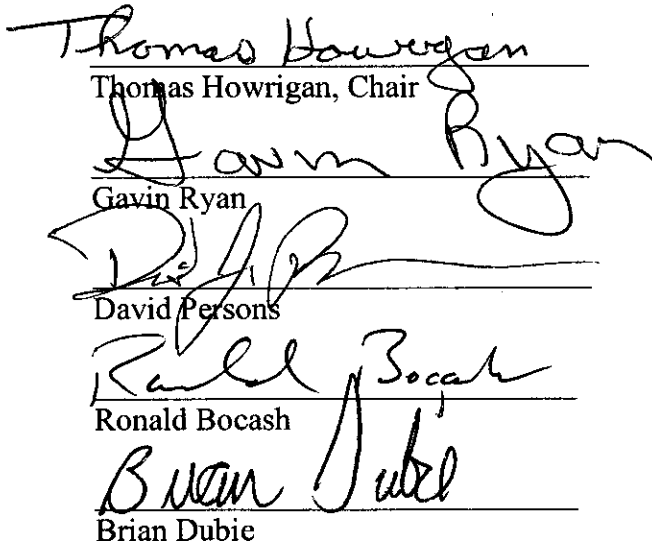 Thomas Howrigan
Thomas Howrigan, Chair
Gavin Ryan
Gavin Ryan
David J. P
David Persons
Ronald Bocash
Ronald Bocash
Brian Dubie
Brian Dubie